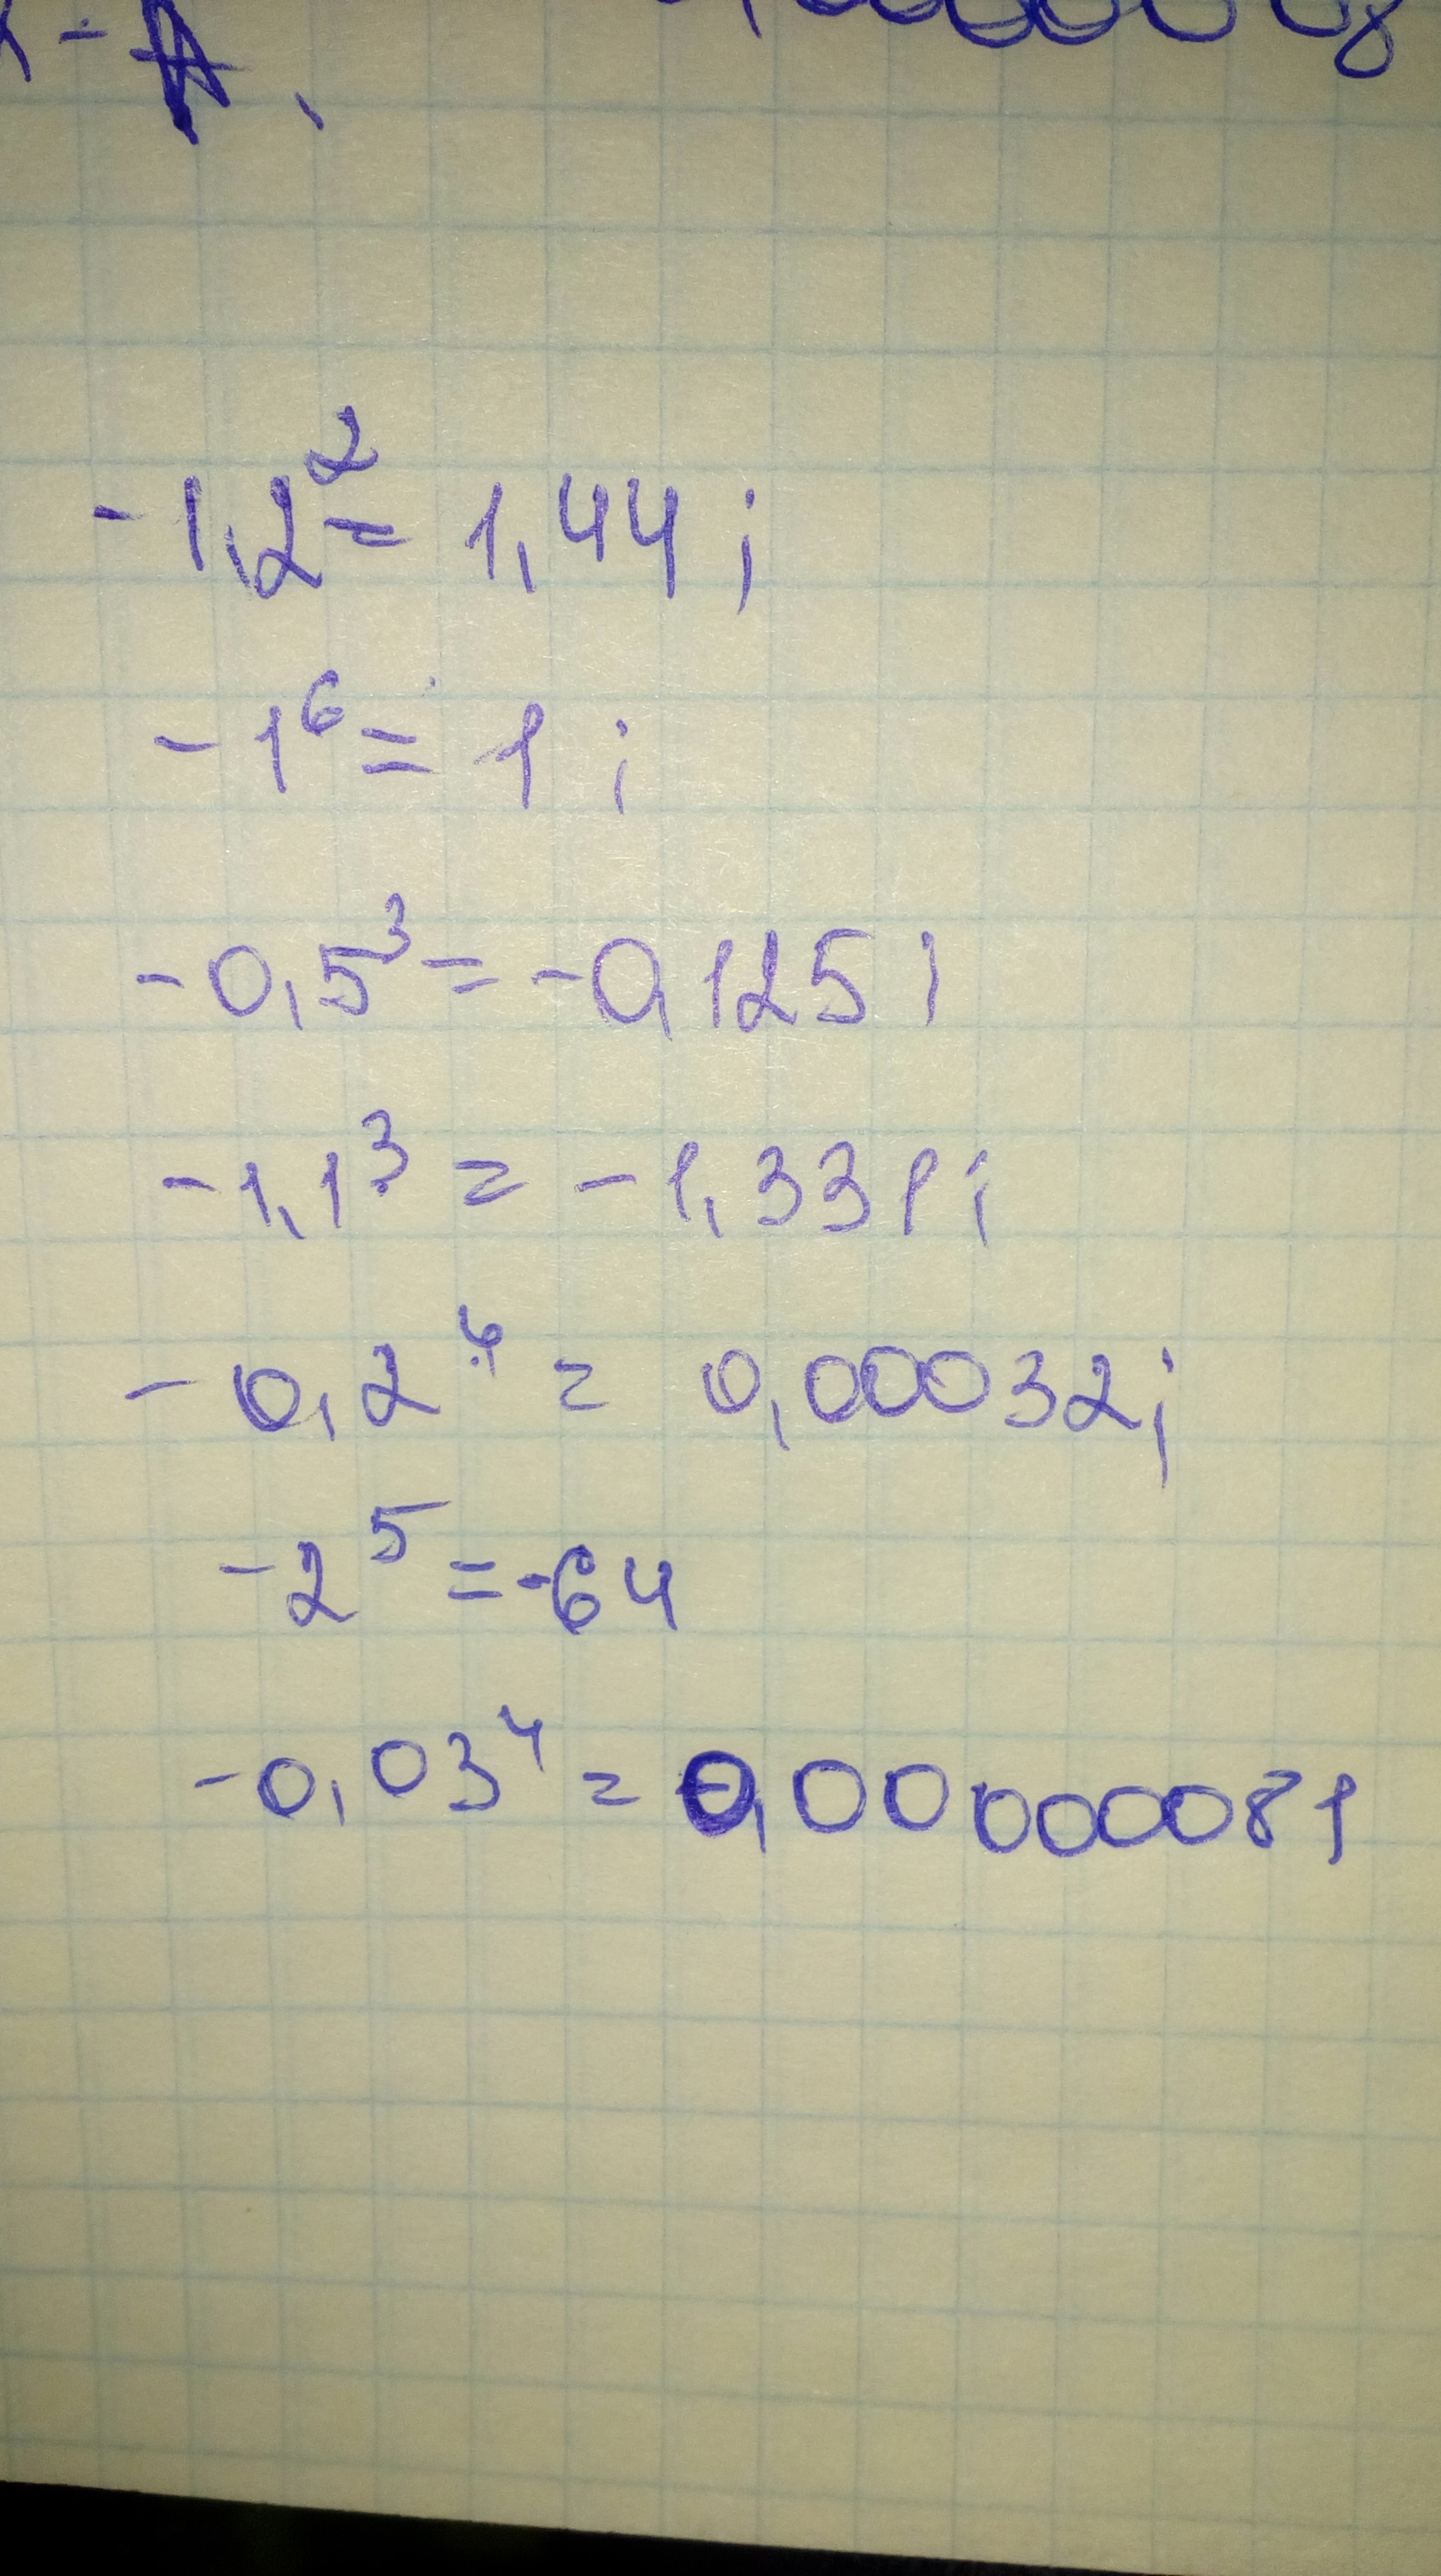 -1,2² = 1,44;
-1⁶ = 1;
-0,5³ = -0,125;
-1,1³ = -1,331;
-0,2⁶ = 0,00032;
-2⁵ = -64
-0,03⁴ = 0,0000000081